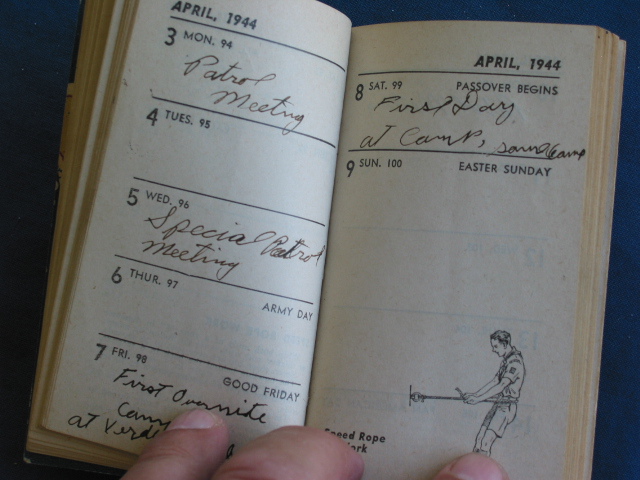 APRIL, 1944
3 MON. 94
Patrol
Meeting
4 TUES. 95
5 WED. 96
Special Patrol
Meeting
6 THUR. 97
ARMY DAY
7 FRI. 98
GOOD FRIDAY
First Overnite
at
APRIL, 1944
8 SAT. 99 PASSOVER BEGINS
First Day
at Camp, same Camp
9 SUN. 100 EASTER SUNDAY
Speed Rope